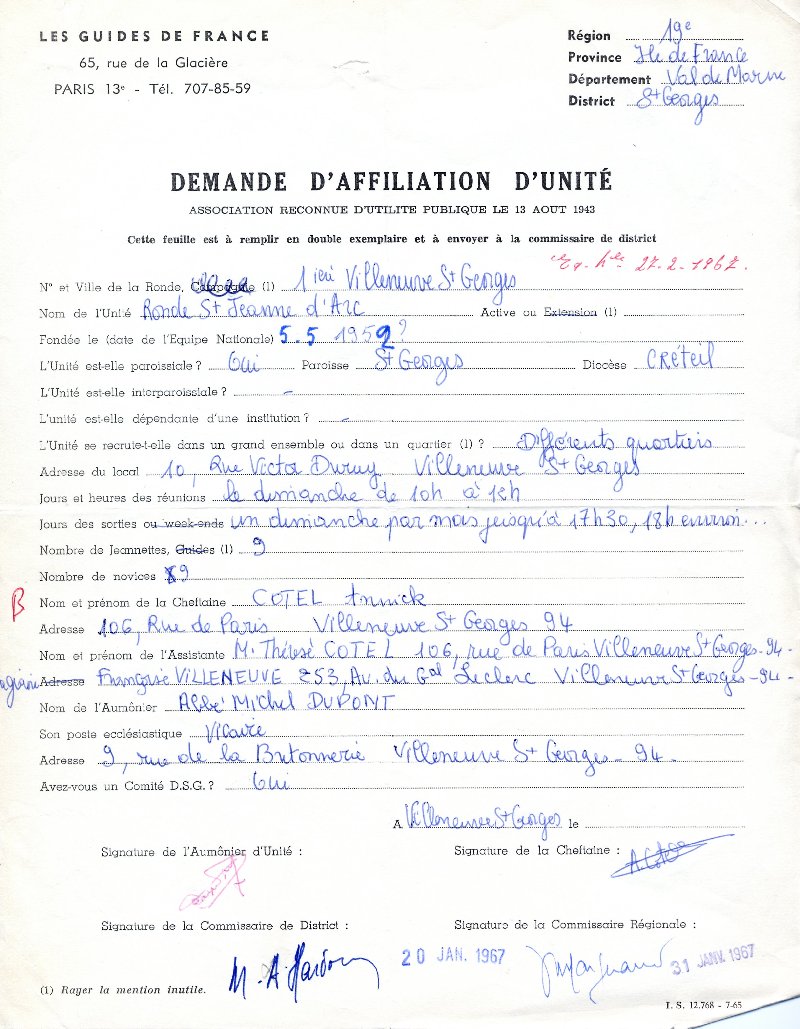 LES GUIDES DE FRANCE
65, rue de la Glacière
PARIS 13e - Tél. 707-85-59
Région 19e
Province Ile de France
Département Val de Marne
District St Georges
DEMANDE D'AFFILIATION D'UNITÉ
ASSOCIATION RECONNUE D'UTILITE PUBLIQUE LE 13 AOUT 1943
Cette feuille est à remplir en double exemplaire et à envoyer à la commissaire de district
27.2.1967.
N° et Ville de la Ronde, Compagnie (1) 1ière Villeneuve St Georges
Nom de l'Unité Ronde St Jeanne d'Arc Active ou Extension (1)
Fondée le (date de l'Equipe Nationale) 5.5 1959 ?
L'Unité est-elle paroissiale ? Oui Paroisse St Georges Diocèse CRéTeil
L'Unité est-elle interparoissiale ? -
L'unité est-elle dépendante d'une institution ? -
L'Unité se recrute-t-elle dans un grand ensemble ou dans un quartier (1) ? Différents quartiers
Adresse du local 10, Rue Victor Duruy Villeneuve St Georges
Jours et heures des réunions le dimanche de 10h à 12h
Jours des sorties ou week-ends un dimanche par mois jusqu'à 17h30, 18h environ...
Nombre de Jeannettes, Guides (1) 9
Nombre de novices 9
B
Nom et prénom de la Cheftaine COTEL Annick
Adresse 106, Rue de Paris Villeneuve St Georges 94
Nom et prénom de l'Assistante M. Thérèse COTEL 106, rue de Paris Villeneuve St Georges - 94 -
Adresse Françoise VILLENEUVE 253, Av. du Gal Leclerc Villeneuve St Georges - 94 -
Nom de l'Aumônier ABBé Michel DUPONT
Son poste ecclésiastique Vicaire
Adresse 9, rue de la Bretonnerie Villeneuve St Georges - 94 -
Avez-vous un Comité D.S.G. ? Oui
A Villeneuve St Georges le
Signature de l'Aumônier d'Unité :
Signature de la Cheftaine :
Signature de la Commissaire de District :
Signature de la Commissaire Régionale :
20 JAN. 1967
31 JANV. 1967
(1) Rayer la mention inutile.
I. S. 12.768 - 7-65